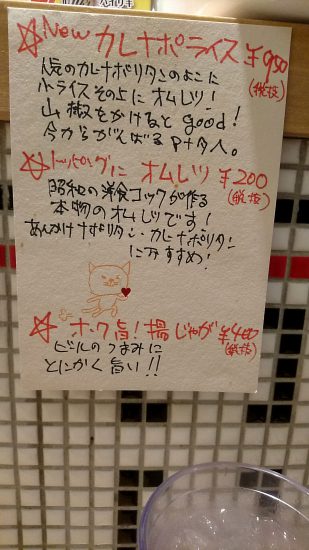 ☆New カレナポライス ¥950
(税抜)
人気のカレナポリタンのよこに
小ライスその上に オムレツ!
山椒をかけると good!
今からがんばる P+タ人。
☆トッピングに オムレツ ¥200
(税抜)
昭和の洋食コックが作る
本物のオムレツです!
あんかけナポリタン・カレナポリタン
にオススメ!
☆ホクホク旨!揚じゃが ¥400
(税抜)
ビールのつまみに
とにかく旨い!!